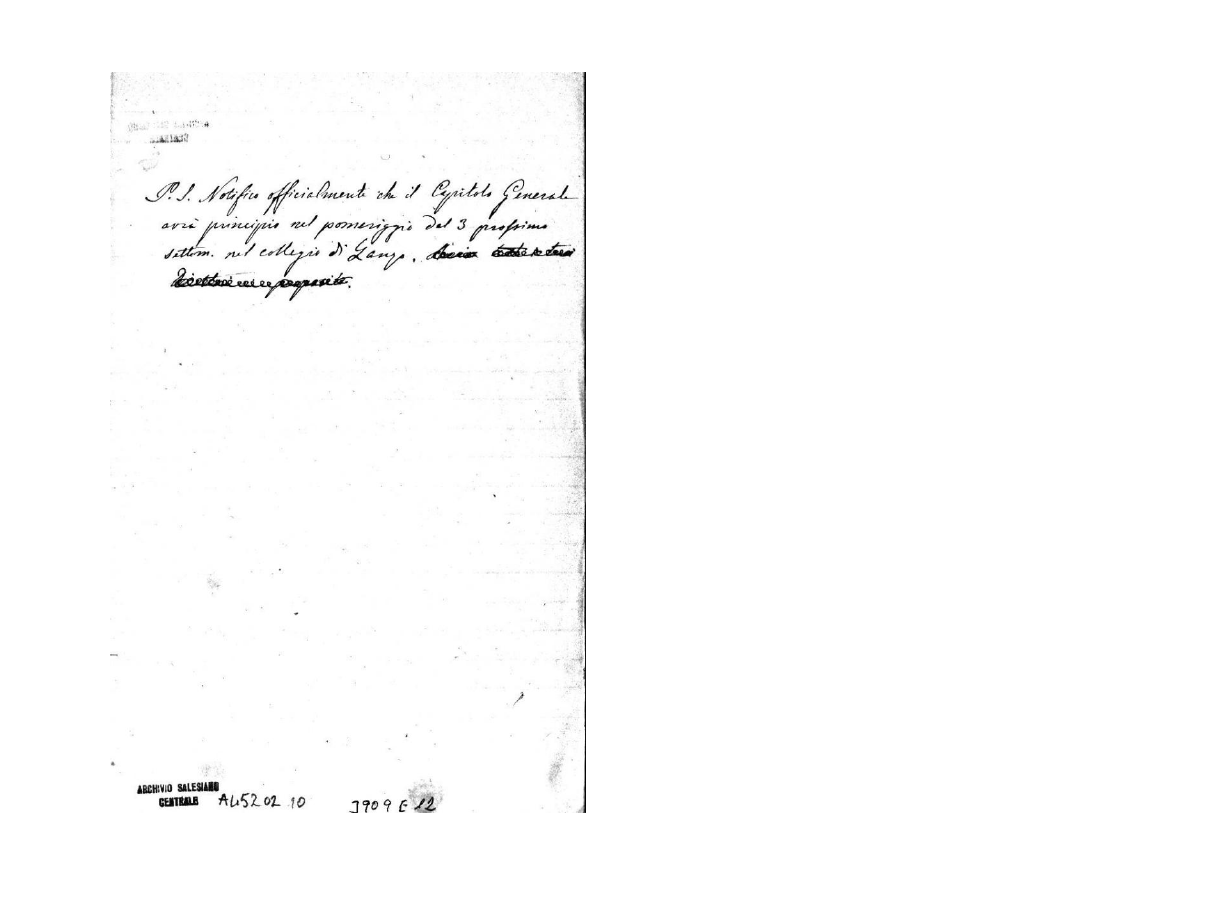 P. S. Notifico officialmente che il Capitolo Generale
avrà principio nel pomeriggio del 3 prossimo
settem. nel collegio di Lanzo.
ARCHIVIO SALESIANO
CENTRALE A4520210
3909 E 12